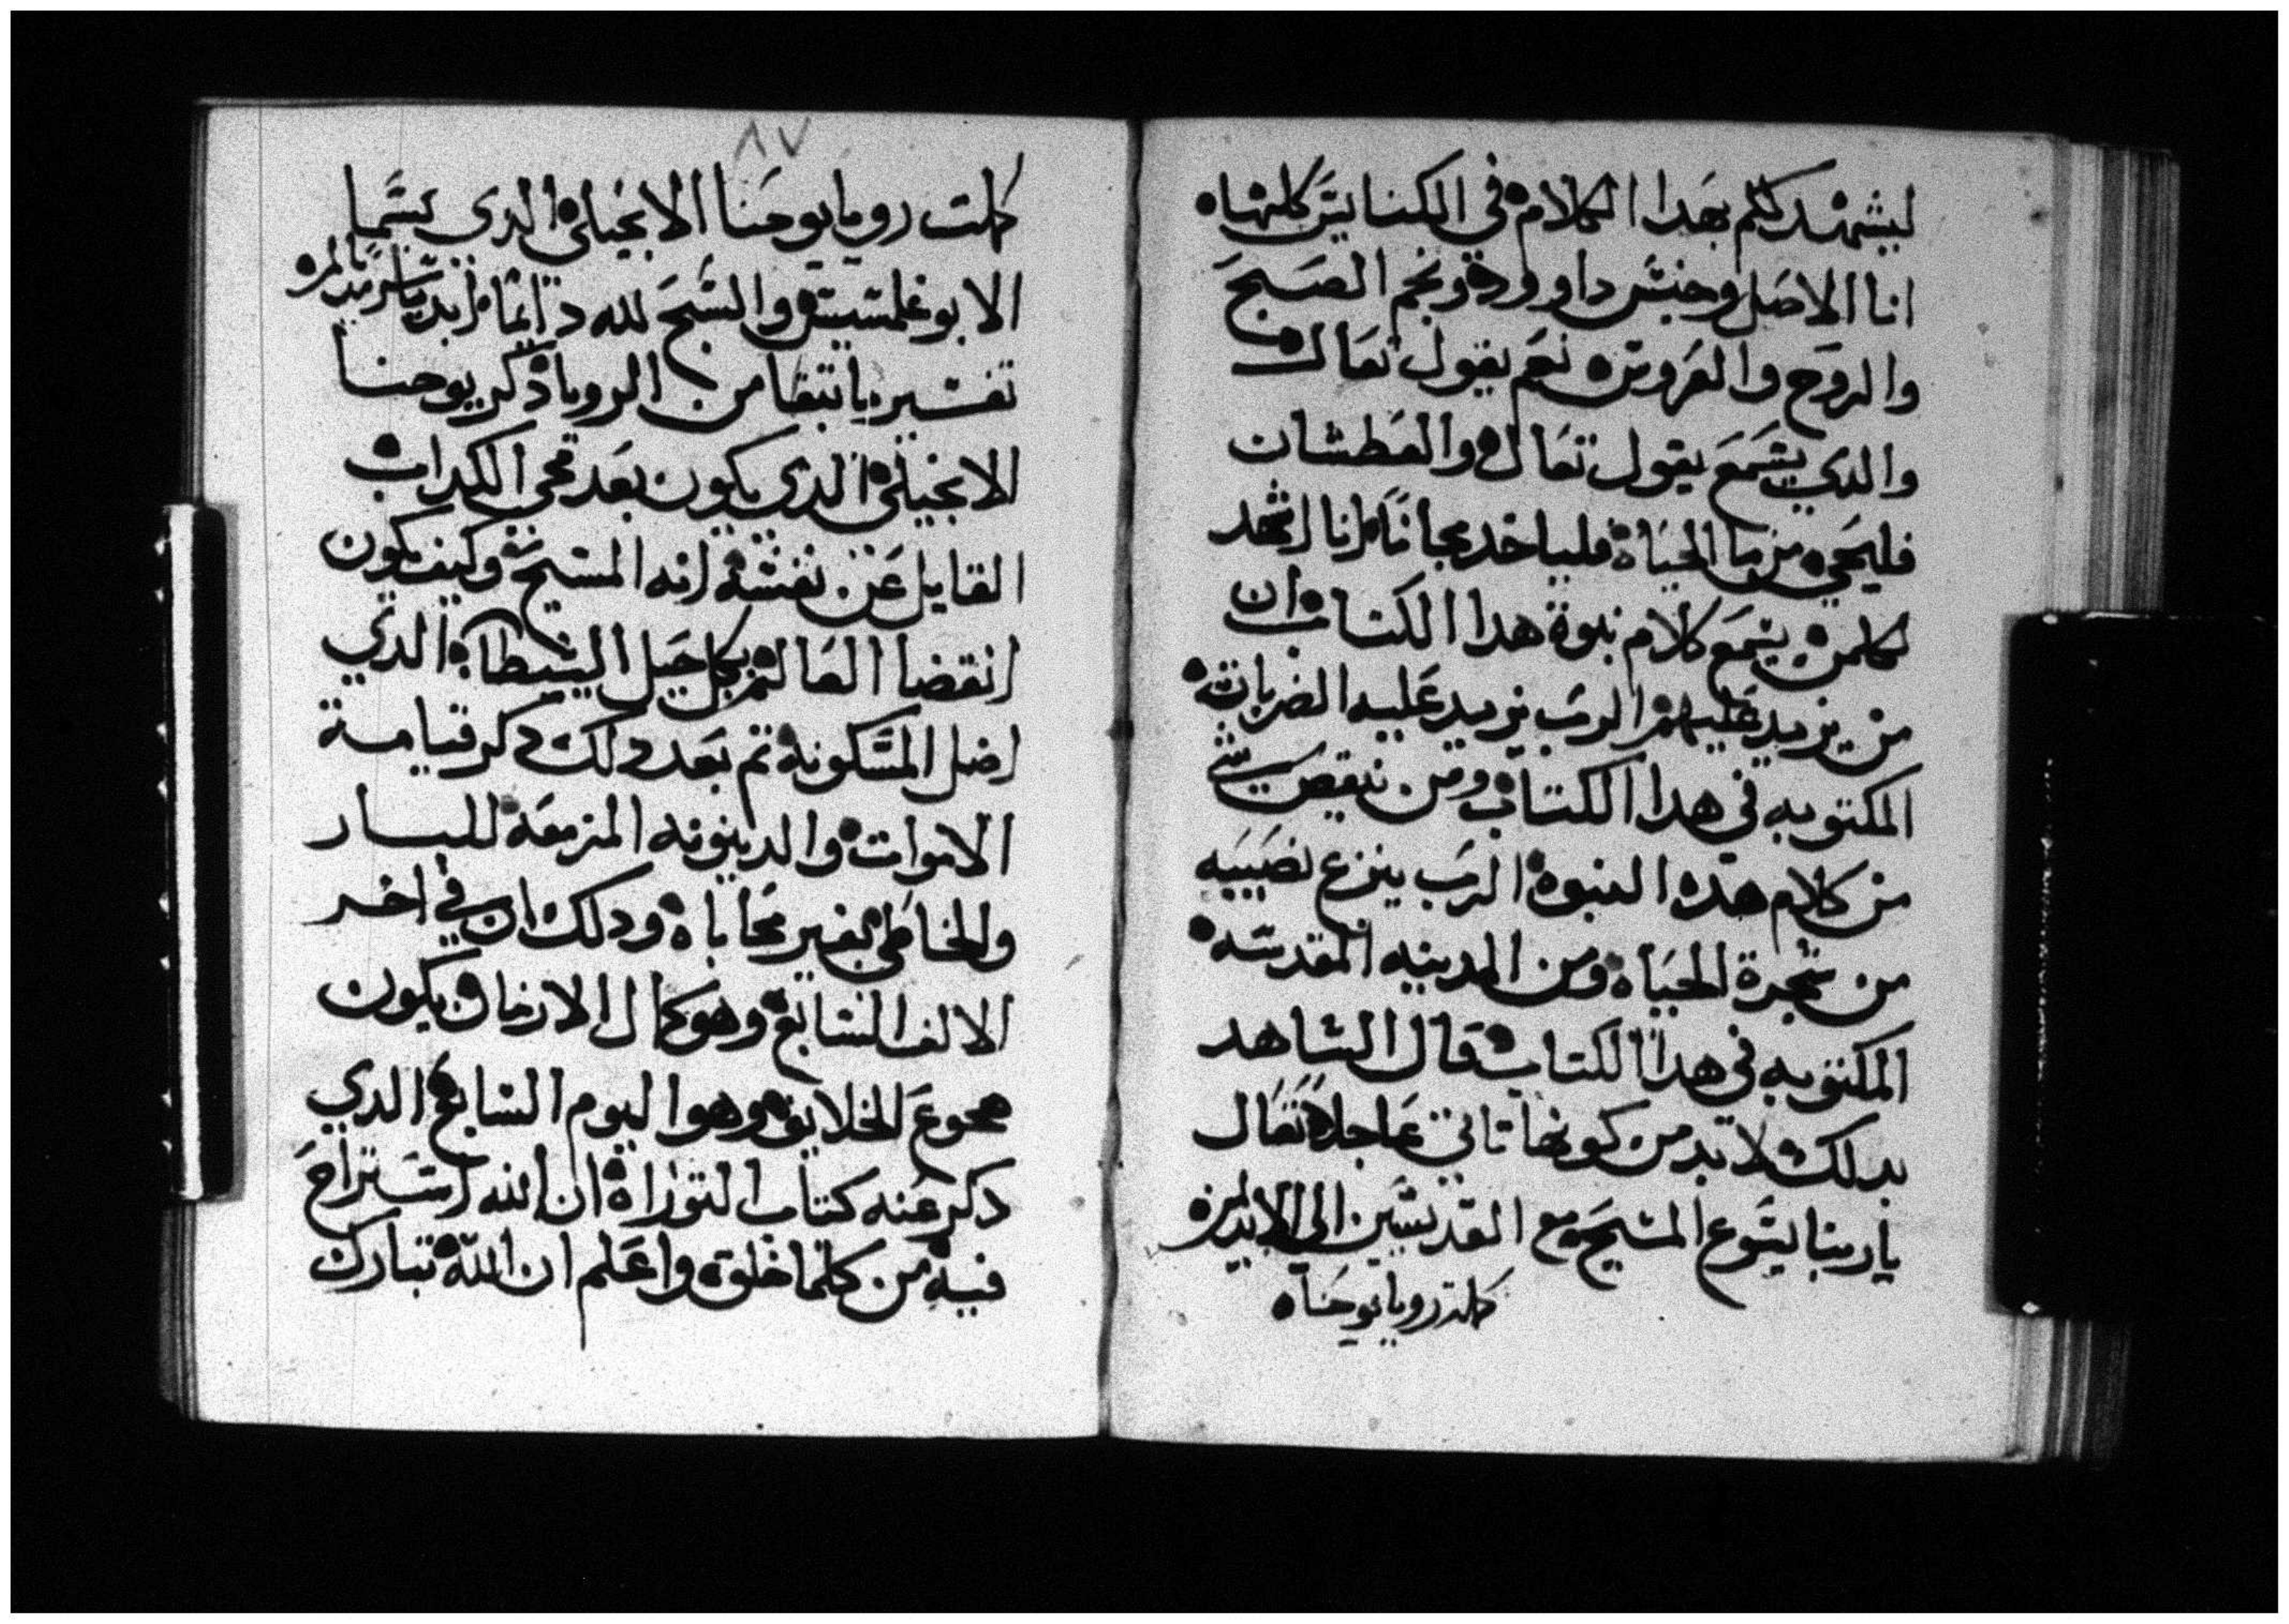 ليشهد لكم بهدا الكلام في الكنايس كلها
انا الاصل وجنس داوود ونجم الصبح
والروح والعروس نعم يقول تعال
والدي يسمع يقول تعال والعطشان
فليجي من ما الحياة فلياخد مجانا انا اشهد
لكلمن يسمع كلام نبوة هدا الكتاب ان
من يزيد عليهم الرب يزيد عليه الضربات
المكتوبه في هدا الكتاب ومن ينقص شي
من كلام هده النبوة الرب ينزع نصيبه
من شجرة الحياة ومن المدينه المقدسه
المكتوبه في هدا الكتاب قال الشاهد
بدلك لا بد من كونها تاتي عاجلا تعال
يا ربنا يسوع المسيح مع القديسين الي الابد امين
كملت رويا يوحنا
٨٧
كملت رويا يوحنا الانجيلي الدي تسما
الابوغلمسيس والسبح لله دايما ابديا سرمديا امين
تفسير ما تبقا من الرويا ذكر يوحنا
الانجيلي الدي يكون بعد مجي الكداب
القايل عن نفسه انه المسيح وكيف يكون
انقضا العالم بكل حيل الشيطان الدي
اضل المسكونة تم بعد دلك دكر قيامة
الاموات والدينونه المزمعة للبار
والخاطي بغير محاباة ودلك ان في اخر
الالف السابع وهو كمال الازمان يكون
مجموع الخلايق وهو اليوم السابع الدي
دكر عنه كتاب التوراة ان الله استراح
فيه من كلما خلق واعلم ان الله تبارك